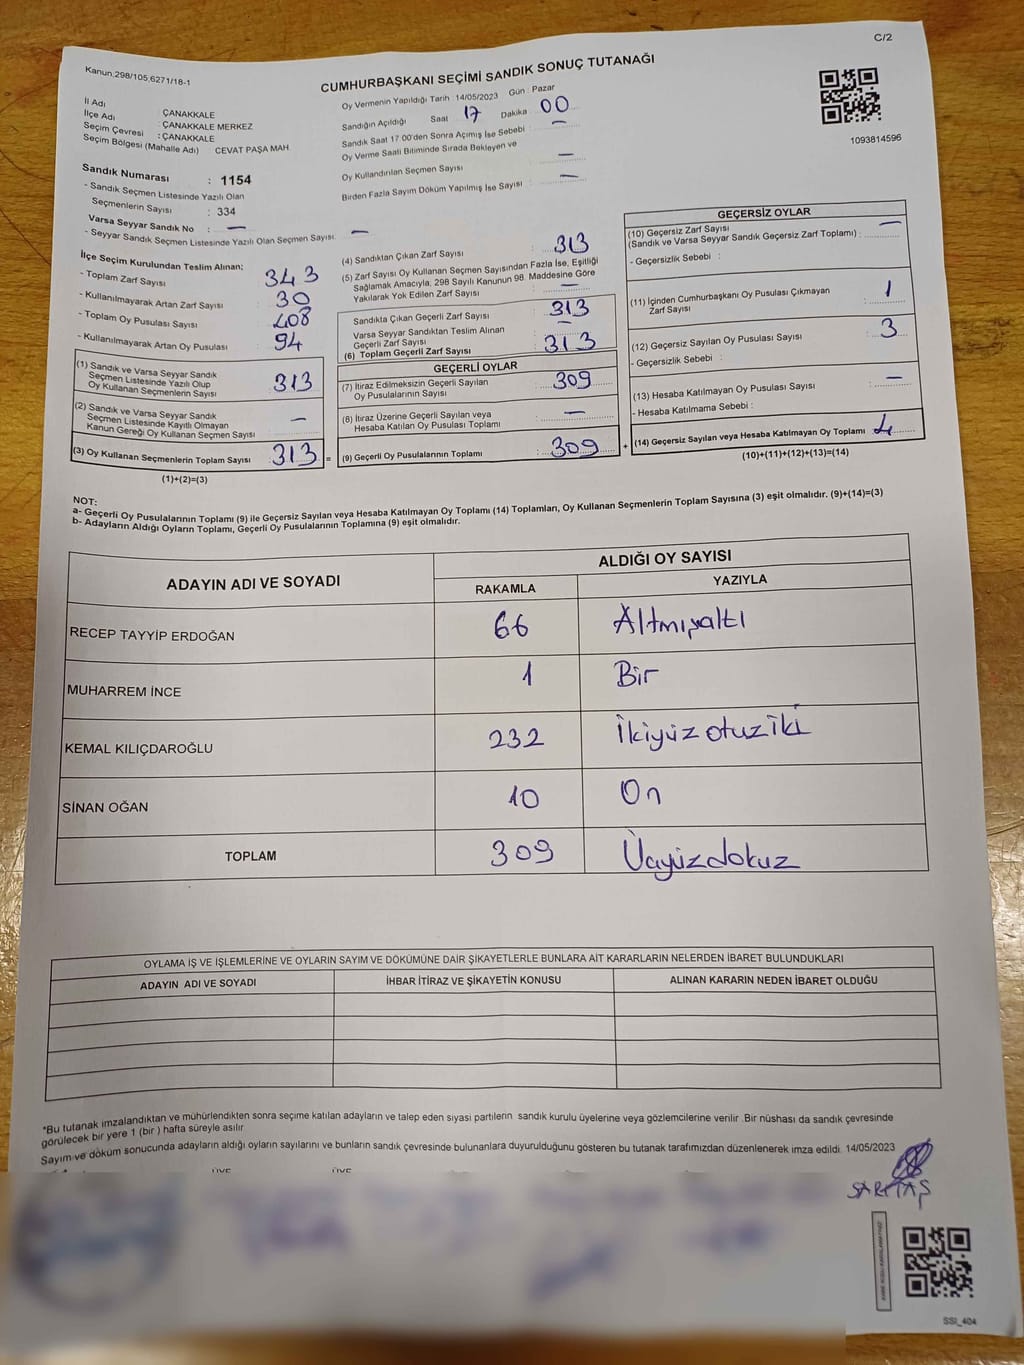 C/2
Kanun,298/105,6271/18-1
CUMHURBAŞKANI SEÇİMİ SANDIK SONUÇ TUTANAĞI
1093814596
İl Adı : ÇANAKKALE
İlçe Adı : ÇANAKKALE MERKEZ
Seçim Çevresi : ÇANAKKALE
Seçim Bölgesi (Mahalle Adı) CEVAT PAŞA MAH.
Oy Vermenin Yapıldığı Tarih 14/05/2023 Gün : Pazar
Sandığın Açıldığı Saat 17 Dakika 00
Sandık Saat 17:00'den Sonra Açımış İse Sebebi : —
Oy Verme Saati Bitiminde Sırada Bekleyen ve
Oy Kullandırılan Seçmen Sayısı : —
Birden Fazla Sayım Döküm Yapılmış İse Sayısı : —
Sandık Numarası : 1154
- Sandık Seçmen Listesinde Yazılı Olan
Seçmenlerin Sayısı : 334
Varsa Seyyar Sandık No : —
- Seyyar Sandık Seçmen Listesinde Yazılı Olan Seçmen Sayısı: —
İlçe Seçim Kurulundan Teslim Alınan;
- Toplam Zarf Sayısı : 343
- Kullanılmayarak Artan Zarf Sayısı : 30
- Toplam Oy Pusulası Sayısı : 408
- Kullanılmayarak Artan Oy Pusulası : 94
(1) Sandık ve Varsa Seyyar Sandık
Seçmen Listesinde Yazılı Olup
Oy Kullanan Seçmenlerin Sayısı : 313
(2) Sandık ve Varsa Seyyar Sandık
Seçmen Listesinde Kayıtlı Olmayan
Kanun Gereği Oy Kullanan Seçmen Sayısı : —
(3) Oy Kullanan Seçmenlerin Toplam Sayısı : 313 =
(1)+(2)=(3)
(4) Sandıktan Çıkan Zarf Sayısı : 313
(5) Zarf Sayısı Oy Kullanan Seçmen Sayısından Fazla İse, Eşitliği
Sağlamak Amacıyla, 298 Sayılı Kanunun 98. Maddesine Göre
Yakılarak Yok Edilen Zarf Sayısı : —
Sandıkta Çıkan Geçerli Zarf Sayısı : 313
Varsa Seyyar Sandıktan Teslim Alınan
Geçerli Zarf Sayısı : —
(6) Toplam Geçerli Zarf Sayısı : 313
GEÇERLİ OYLAR
(7) İtiraz Edilmeksizin Geçerli Sayılan
Oy Pusulalarının Sayısı : 309
(8) İtiraz Üzerine Geçerli Sayılan veya
Hesaba Katılan Oy Pusulası Toplamı : —
(9) Geçerli Oy Pusulalarının Toplamı : 309 +
GEÇERSİZ OYLAR
(10) Geçersiz Zarf Sayısı —
(Sandık ve Varsa Seyyar Sandık Geçersiz Zarf Toplamı) :
- Geçersizlik Sebebi :
(11) İçinden Cumhurbaşkanı Oy Pusulası Çıkmayan
Zarf Sayısı : 1
(12) Geçersiz Sayılan Oy Pusulası Sayısı : 3
- Geçersizlik Sebebi :
(13) Hesaba Katılmayan Oy Pusulası Sayısı : —
- Hesaba Katılmama Sebebi :
(14) Geçersiz Sayılan veya Hesaba Katılmayan Oy Toplamı : 4
(10)+(11)+(12)+(13)=(14)
NOT:
a- Geçerli Oy Pusulalarının Toplamı (9) ile Geçersiz Sayılan veya Hesaba Katılmayan Oy Toplamı (14) Toplamları, Oy Kullanan Seçmenlerin Toplam Sayısına (3) eşit olmalıdır. (9)+(14)=(3)
b- Adayların Aldığı Oyların Toplamı, Geçerli Oy Pusulalarının Toplamına (9) eşit olmalıdır.
ADAYIN ADI VE SOYADI
ALDIĞI OY SAYISI
RAKAMLA YAZIYLA
RECEP TAYYİP ERDOĞAN 66 Altmışaltı
MUHARREM İNCE 1 Bir
KEMAL KILIÇDAROĞLU 232 İkiyüzotuziki
SİNAN OĞAN 10 On
TOPLAM 309 Üçyüzdokuz
OYLAMA İŞ VE İŞLEMLERİNE VE OYLARIN SAYIM VE DÖKÜMÜNE DAİR ŞİKAYETLERLE BUNLARA AİT KARARLARIN NELERDEN İBARET BULUNDUKLARI
ADAYIN ADI VE SOYADI İHBAR İTİRAZ VE ŞİKAYETİN KONUSU ALINAN KARARIN NEDEN İBARET OLDUĞU
*Bu tutanak imzalandıktan ve mühürlendikten sonra seçime katılan adayların ve talep eden siyasi partilerin sandık kurulu üyelerine veya gözlemcilerine verilir .Bir nüshası da sandık çevresinde
görülecek bir yere 1 (bir ) hafta süreyle asılır.
Sayım ve döküm sonucunda adayların aldığı oyların sayılarını ve bunların sandık çevresinde bulunanlara duyurulduğunu gösteren bu tutanak tarafımızdan düzenlenerek imza edildi. 14/05/2023
ÜYE ÜYE
SARITAŞ
SSI_404